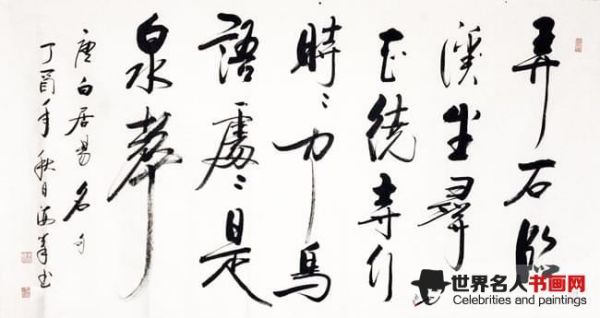 弄石臨
溪坐尋
花繞寺行
時〻聞鳥
語處〻是
泉聲
唐白居易名句
丁酉年秋日
世界名人书画网
Celebrities and paintings